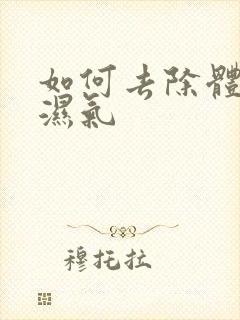 如何去除體
濕氣
穆托拉